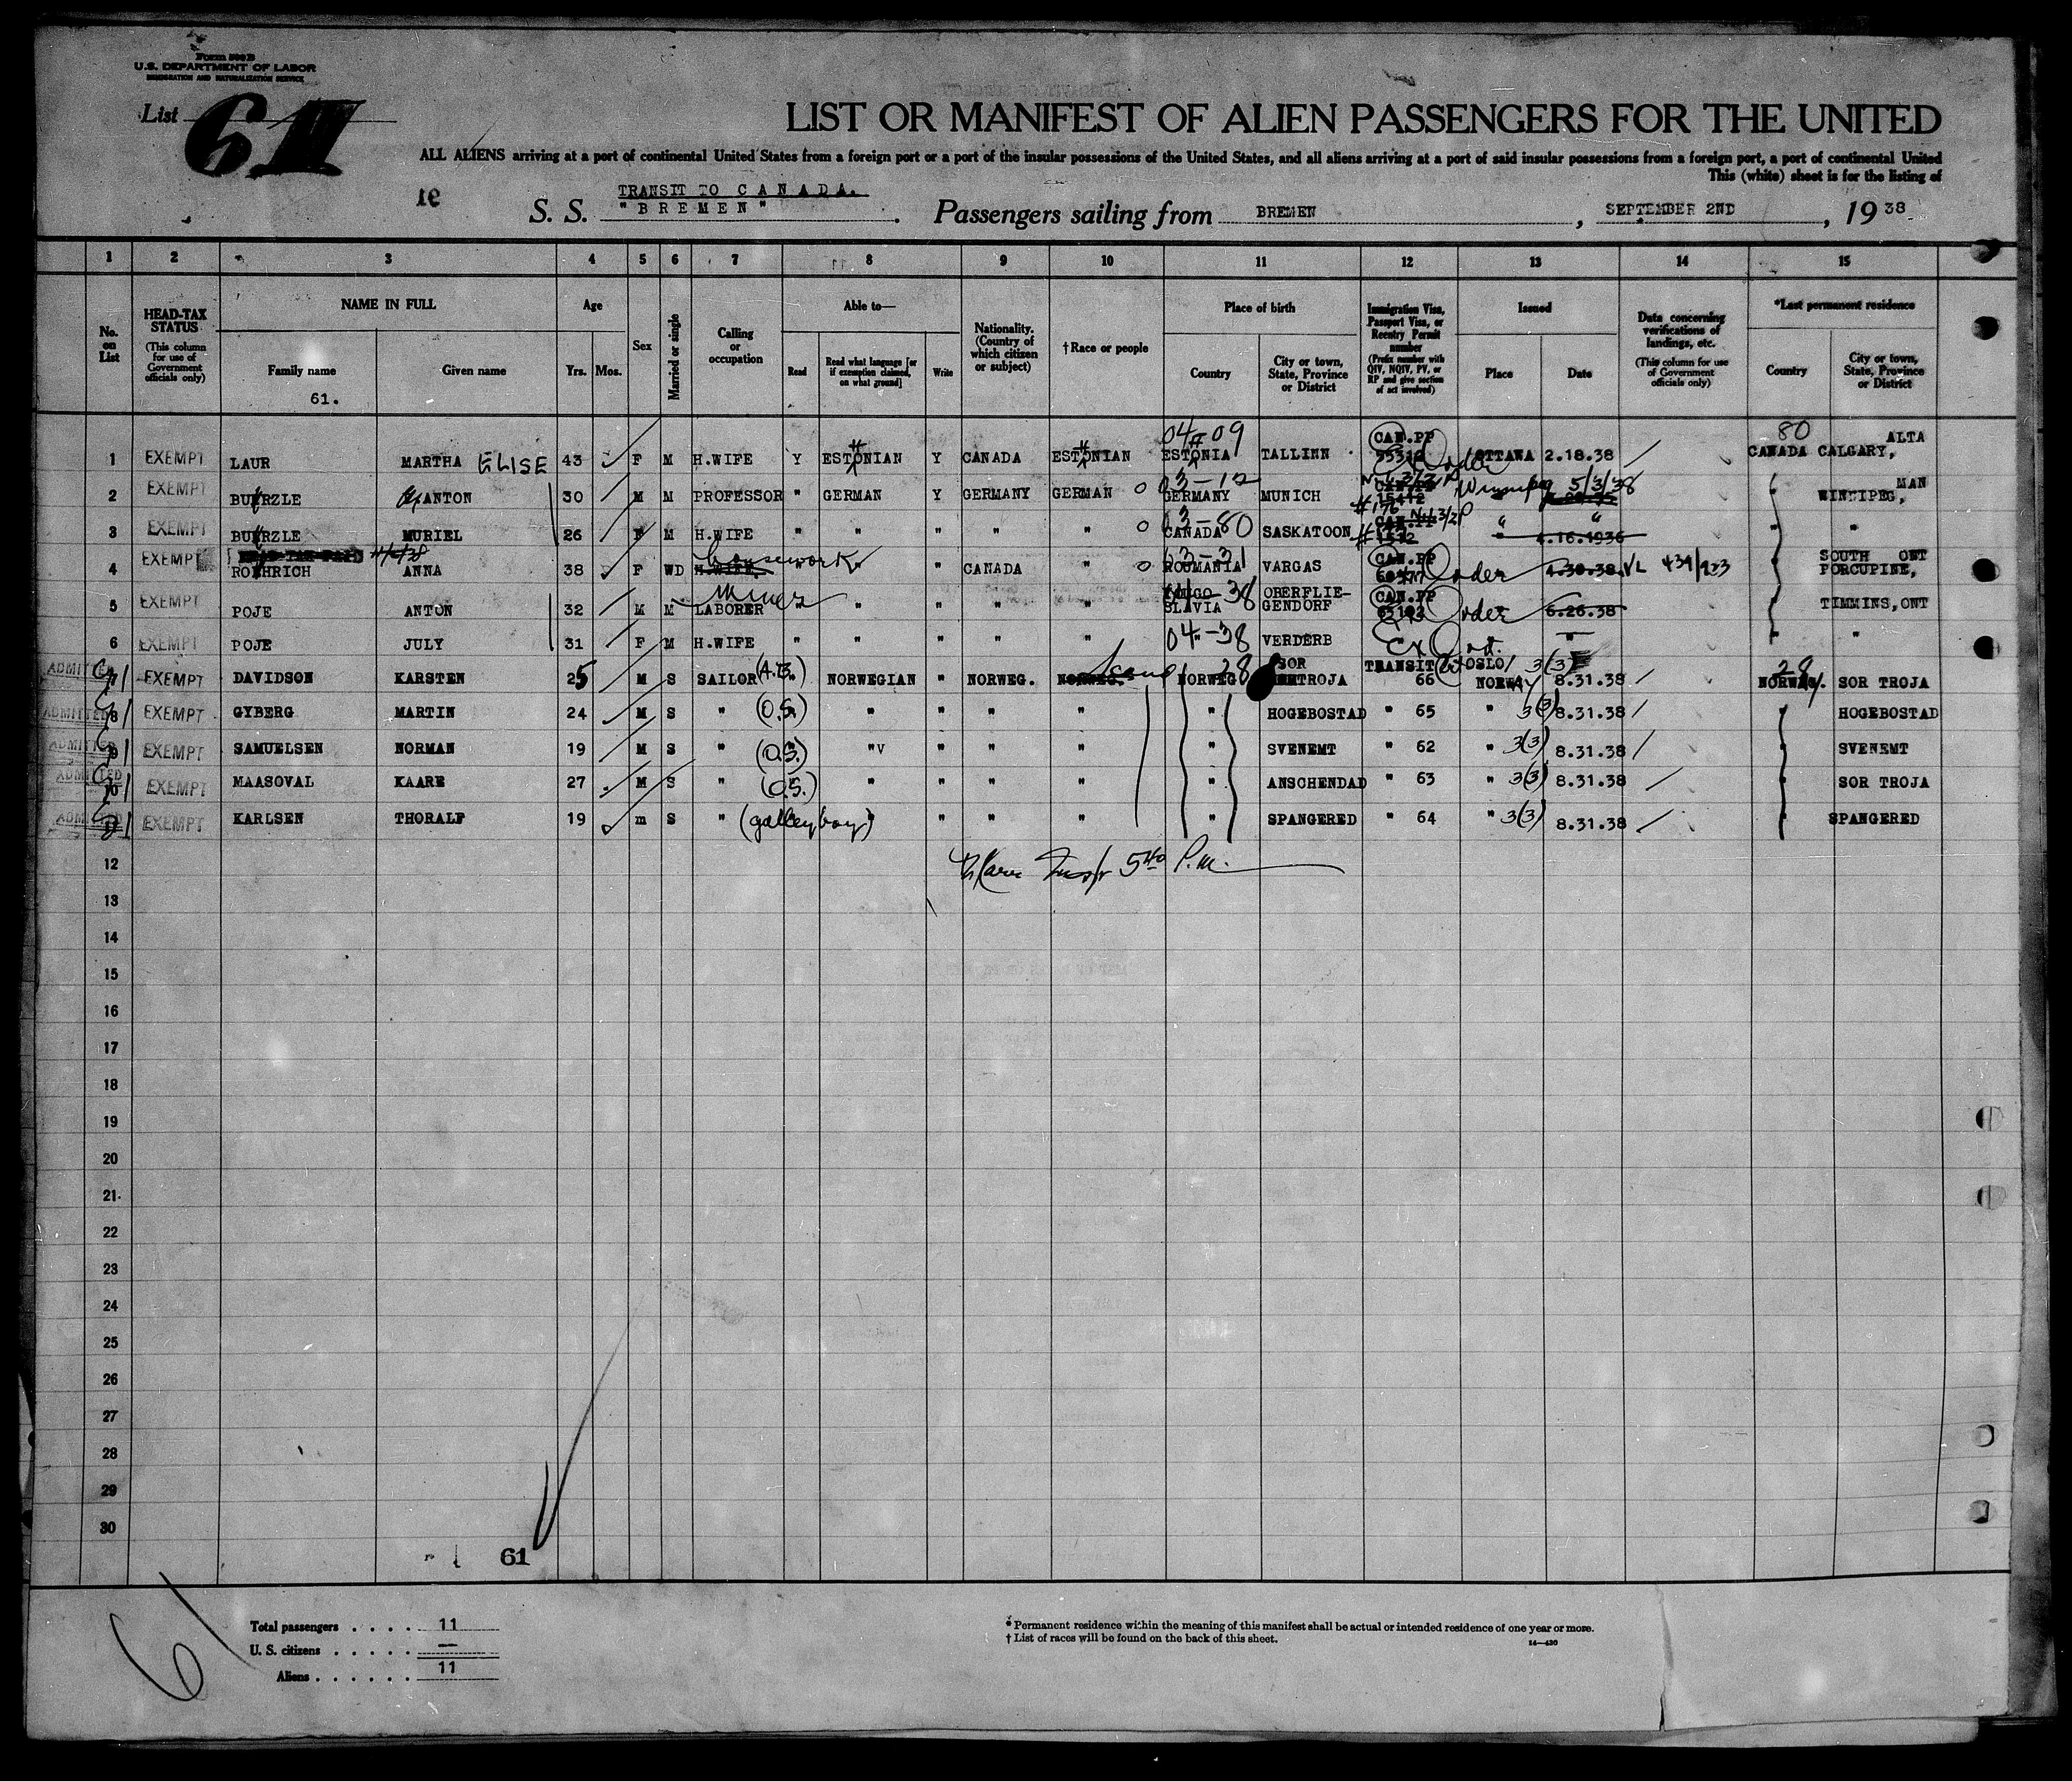 Form 500 B
U.S. DEPARTMENT OF LABOR
IMMIGRATION AND NATURALIZATION SERVICE
List 61
LIST OR MANIFEST OF ALIEN PASSENGERS FOR THE UNITED
ALL ALIENS arriving at a port of continental United States from a foreign port or a port of the insular possessions of the United States, and all aliens arriving at a port of said insular possessions from a foreign port, a port of continental United
This (white) sheet is for the listing of
TRANSIT TO CANADA.
S. S. "BREMEN". Passengers sailing from BREMEN, SEPTEMBER 2ND, 19 38
1 2 3 4 5 6 7 8 9 10 11 12 13 14 15
No. on List
HEAD-TAX STATUS (This column for use of Government officials only)
NAME IN FULL Family name Given name
61.
Age Yrs. Mos.
Sex
Married or single
Calling or occupation
Able to— Read Read what language [or if exemption claimed, on what ground] Write
Nationality. (Country of which citizen or subject)
†Race or people
Place of birth Country City or town, State, Province or District
Immigration Visa, Passport Visa, or Reentry Permit number (Prefix number with QIV, NQIV, PV, or RP and give section of act involved)
Issued Place Date
Data concerning verifications of landings, etc. (This column for use of Government officials only)
*Last permanent residence Country City or town, State, Province or District
1 EXEMPT LAUR MARTHA ELISE 43 F M H.WIFE Y ESTONIAN Y CANADA ESTONIAN 04-09 ESTONIA TALLINN CAN.PP OTTAWA 2.18.38 80 CANADA CALGARY, ALTA
2 EXEMPT BUERZLE ANTON 30 M M PROFESSOR " GERMAN Y GERMANY GERMAN 03-12 GERMANY MUNICH 15412 Winnipeg 5/3/38 WINNIPEG, MAN
3 EXEMPT BUERZLE MURIEL 26 F M H.WIFE " " " " " 03-80 CANADA SASKATOON 1572 " 4.16.1936 " "
4 EXEMPT ROEHRICH ANNA 38 F WD H.WIFE housework " " " CANADA " 03-31 ROUMANIA VARGAS CAN.PP Order 4.30.38 VL 439/923 SOUTH PORCUPINE, ONT
5 EXEMPT POJE ANTON 32 M M LABORER Miner " " " " " SLAVIA 38 OBERFLIE-GENDORF CAN.PP Order 6.26.38 TIMMINS,ONT
6 EXEMPT POJE JULY 31 F M H.WIFE " " " " " 04-38 VERDERB " " "
ADMITTED 7 EXEMPT DAVIDSON KARSTEN 25 M S SAILOR (A.B.) " NORWEGIAN " NORWEG. NORWEG. Scand NORWEG 28 SOR TROJA TRANSIT 66 OSLO/ NORWAY 3(3) 8.31.38 28 NORWEG. SOR TROJA
ADMITTED 8 EXEMPT GYBERG MARTIN 24 M S " (O.S.) " " " " " HOGEBOSTAD " 65 " 3(3) 8.31.38 HOGEBOSTAD
ADMITTED 9 EXEMPT SAMUELSEN NORMAN 19 M S " (O.S.) " " " " " SVENEMT " 62 " 3(3) 8.31.38 SVENEMT
ADMITTED 10 EXEMPT MAASOVAL KAARE 27 M S " (O.S.) " " " " " ANSCHENDAD " 63 " 3(3) 8.31.38 SOR TROJA
ADMITTED 11 EXEMPT KARLSEN THORALF 19 m S " (galley boy) " " " " " SPANGERED " 64 " 3(3) 8.31.38 SPANGERED
12 5 40 P.M.
13
14
15
16
17
18
19
20
21
22
23
24
25
26
27
28
29
30
61
61
Total passengers . . . . 11
U. S. citizens . . . . . —
Aliens . . . . . . 11
* Permanent residence within the meaning of this manifest shall be actual or intended residence of one year or more.
† List of races will be found on the back of this sheet.
14—430